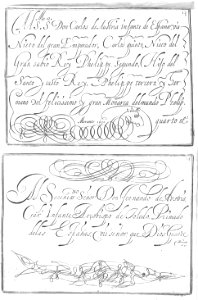 Al S.mo Don Carlos de Austria infante de España
Nieto del gran Emperador Carlos quinto Nieto del
Gran sabio Rey Phelipe Segundo Hijo del
Santo y casto Rey Phelipe tercero y Her
mano del felicissimo y gran Monarca del mundo Phelip
quarto el
Al Serenis.mo Señor Don Fernando de Austria
Car Infante Arzobispo de Toledo Primado
delas Españas mi señor que Dios guarde